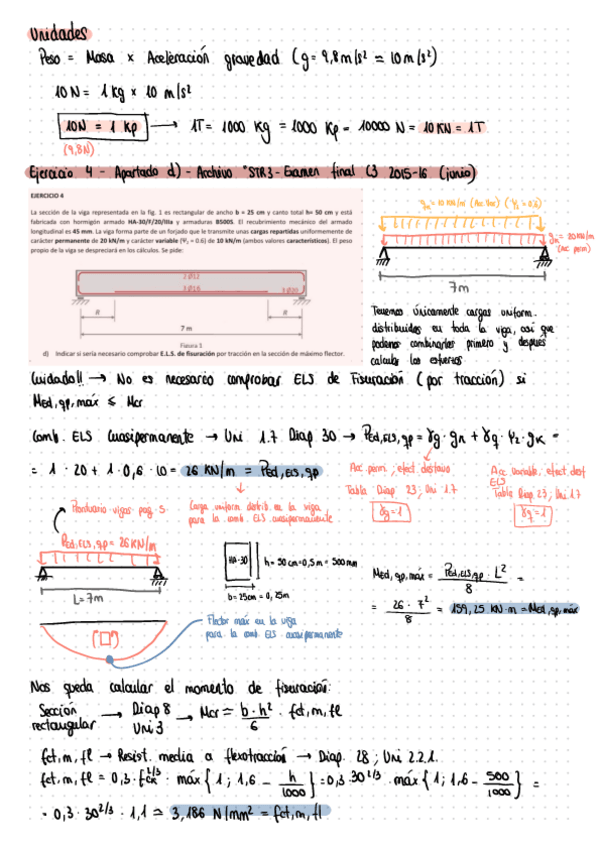 Unidades
Peso = Masa x Aceleración gravedad (g = 9,8 m/s² ≈ 10 m/s²)
10 N = 1 kg x 10 m/s²
10N = 1 Kp → 1T = 1000 Kg = 1000 Kp = 10000 N = 10 KN = 1T
(9,8N)
Ejercicio 4 - Apartado d) - Archivo "STR3 - Examen final C3 2015-16 (junio)
EJERCICIO 4
La sección de la viga representada en la fig. 1 es rectangular de ancho b = 25 cm y canto total h= 50 cm y está
fabricada con hormigón armado HA-30/F/20/IIIa y armaduras B500S. El recubrimiento mecánico del armado
longitudinal es 45 mm. La viga forma parte de un forjado que le transmite unas cargas repartidas uniformemente de
carácter permanente de 20 kN/m y carácter variable (Ψ2 = 0.6) de 10 kN/m (ambos valores característicos). El peso
propio de la viga se despreciará en los cálculos. Se pide:
2Ø12
3Ø16
3Ø20
R
R
7 m
d) Indicar si sería necesario comprobar E.L.S. de fisuración por tracción en la sección de máximo flector.
qk = 10 KN/m (Acc. Var) (Ψ2 = 0.6)
gk = 20 KN/m
(Acc. perm)
7m
Tenemos únicamente cargas uniform.
distribuidas en toda la viga, así que
podemos combinarlas primero y después
calcular los esfuerzos
Cuidado!! → No es necesario comprobar ELS de Fisuración (por tracción) si
Med,qp,máx ≤ Mcr
Comb. ELS Cuasipermanente → Uni 1.7 Diap 30 → Ped,ELS,qp = γg · gk + γq · Ψ2 · qk =
= 1 · 20 + 1 · 0,6 · 10 = 26 KN/m = Ped,ELS,qp
Acc. perm; efect. desfavo
Tabla Diap 23; Uni 1.7
γg = 1
Acc Variable, efect desf
ELS
Tabla Diap 23; Uni 1.7
γq = 1
Prontuario vigas pag. 5
Carga uniform distrib. en la viga
para la comb. ELS cuasipermanente
Ped,ELS,qp = 26 KN/m
L = 7m
HA-30
h = 50 cm = 0,5 m = 500 mm
b = 25cm = 0,25m
Med,qp,máx = Ped,ELS,qp · L² / 8 =
= 26 · 7² / 8 = 159,25 KN·m = Med,qp,máx
Flector máx en la viga
para la comb. ELS cuasipermanente
Nos queda calcular el momento de fisuración:
Sección rectangular → Diap 8 Uni 3 → Mcr = b · h² / 6 · fct,m,fl
fct,m,fl → Resist. media a flexotracción → Diap. 28; Uni 2.2.1.
fct,m,fl = 0,3 · fck^2/3 · máx { 1 ; 1,6 - h/1000 } = 0,3 · 30^2/3 · máx { 1 ; 1,6 - 500/1000 } =
= 0,3 · 30^2/3 · 1,1 ≃ 3,186 N/mm² = fct,m,fl